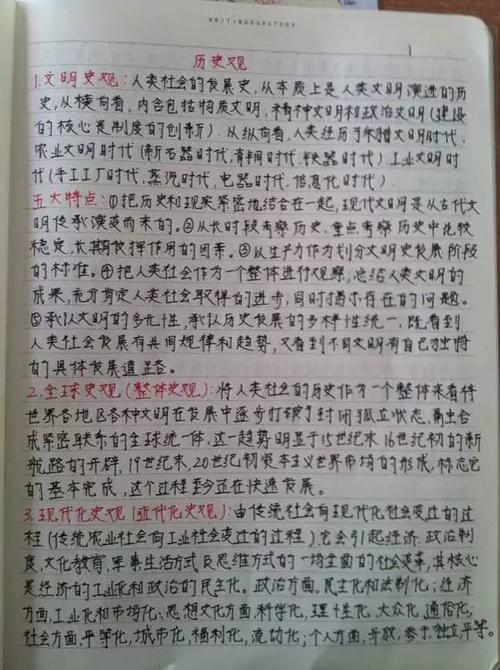 1
历史观
1.文明史观：人类社会的发展史，从本质上是人类文明演进的历
史，从横向看，内含包括物质文明，精神文明和政治文明（建设
的核心是制度的创新）．从纵向看，人类经历了采猎文明时代，
农业文明时代（新石器时代，青铜时代，铁器时代）．工业文明时
代（手工工厂时代，蒸汽时代，电器时代．信息化时代）．
五大特点：①把历史和现实紧密地结合在一起，现代文明是从古代文
明传承演变而来的。②从长时段考察历史．重点考察历史中比较
稳定，长期发挥作用的因素。③以生产力作为划分文明史发展阶段
的标准。④把人类社会作为一个整体进行观察，总结人类文明的
成果，充分肯定人类社会取得的进步，同时揭示存在的问题。
⑤承认文明的多元性，承认历史发展的多样性统一．既看到
人类社会发展有共同规律和趋势，又看到不同文明有自己独特
的具体发展道路。
2.全球史观（整体史观）：将人类社会的历史作为一个整体来看待
世界各地区各种文明在发展中逐步打破了封闭孤立状态，融合
成紧密联系的全球统一体，这一趋势明显于15世纪末16世纪初的新
航路的开辟，19世纪末，20世纪初资本主义世界市场的形成，标志它
的基本完成，这个过程至今正在快速发展。
3.现代化史观（近代化史观）：由传统社会向现代化社会变迁的过
程（传统农业社会向工业社会变迁的过程）它会引起经济，政治制
度，文化教育，军事生活方式，及思维方式的一场全面的社会变革，其核心
是经济的工业化和政治的民主化。政治方面，民主化和法制化；经济
方面，工业化和市场化；思想文化方面，科学化，理性化，大众化，通俗化；
社会方面，平等化，城市化，福利化，流动化；个人方面，开放，参与，独立，平等。